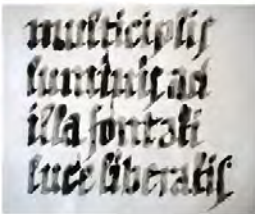 multiciplis
luminis ad
illa fontali
luce liberalis